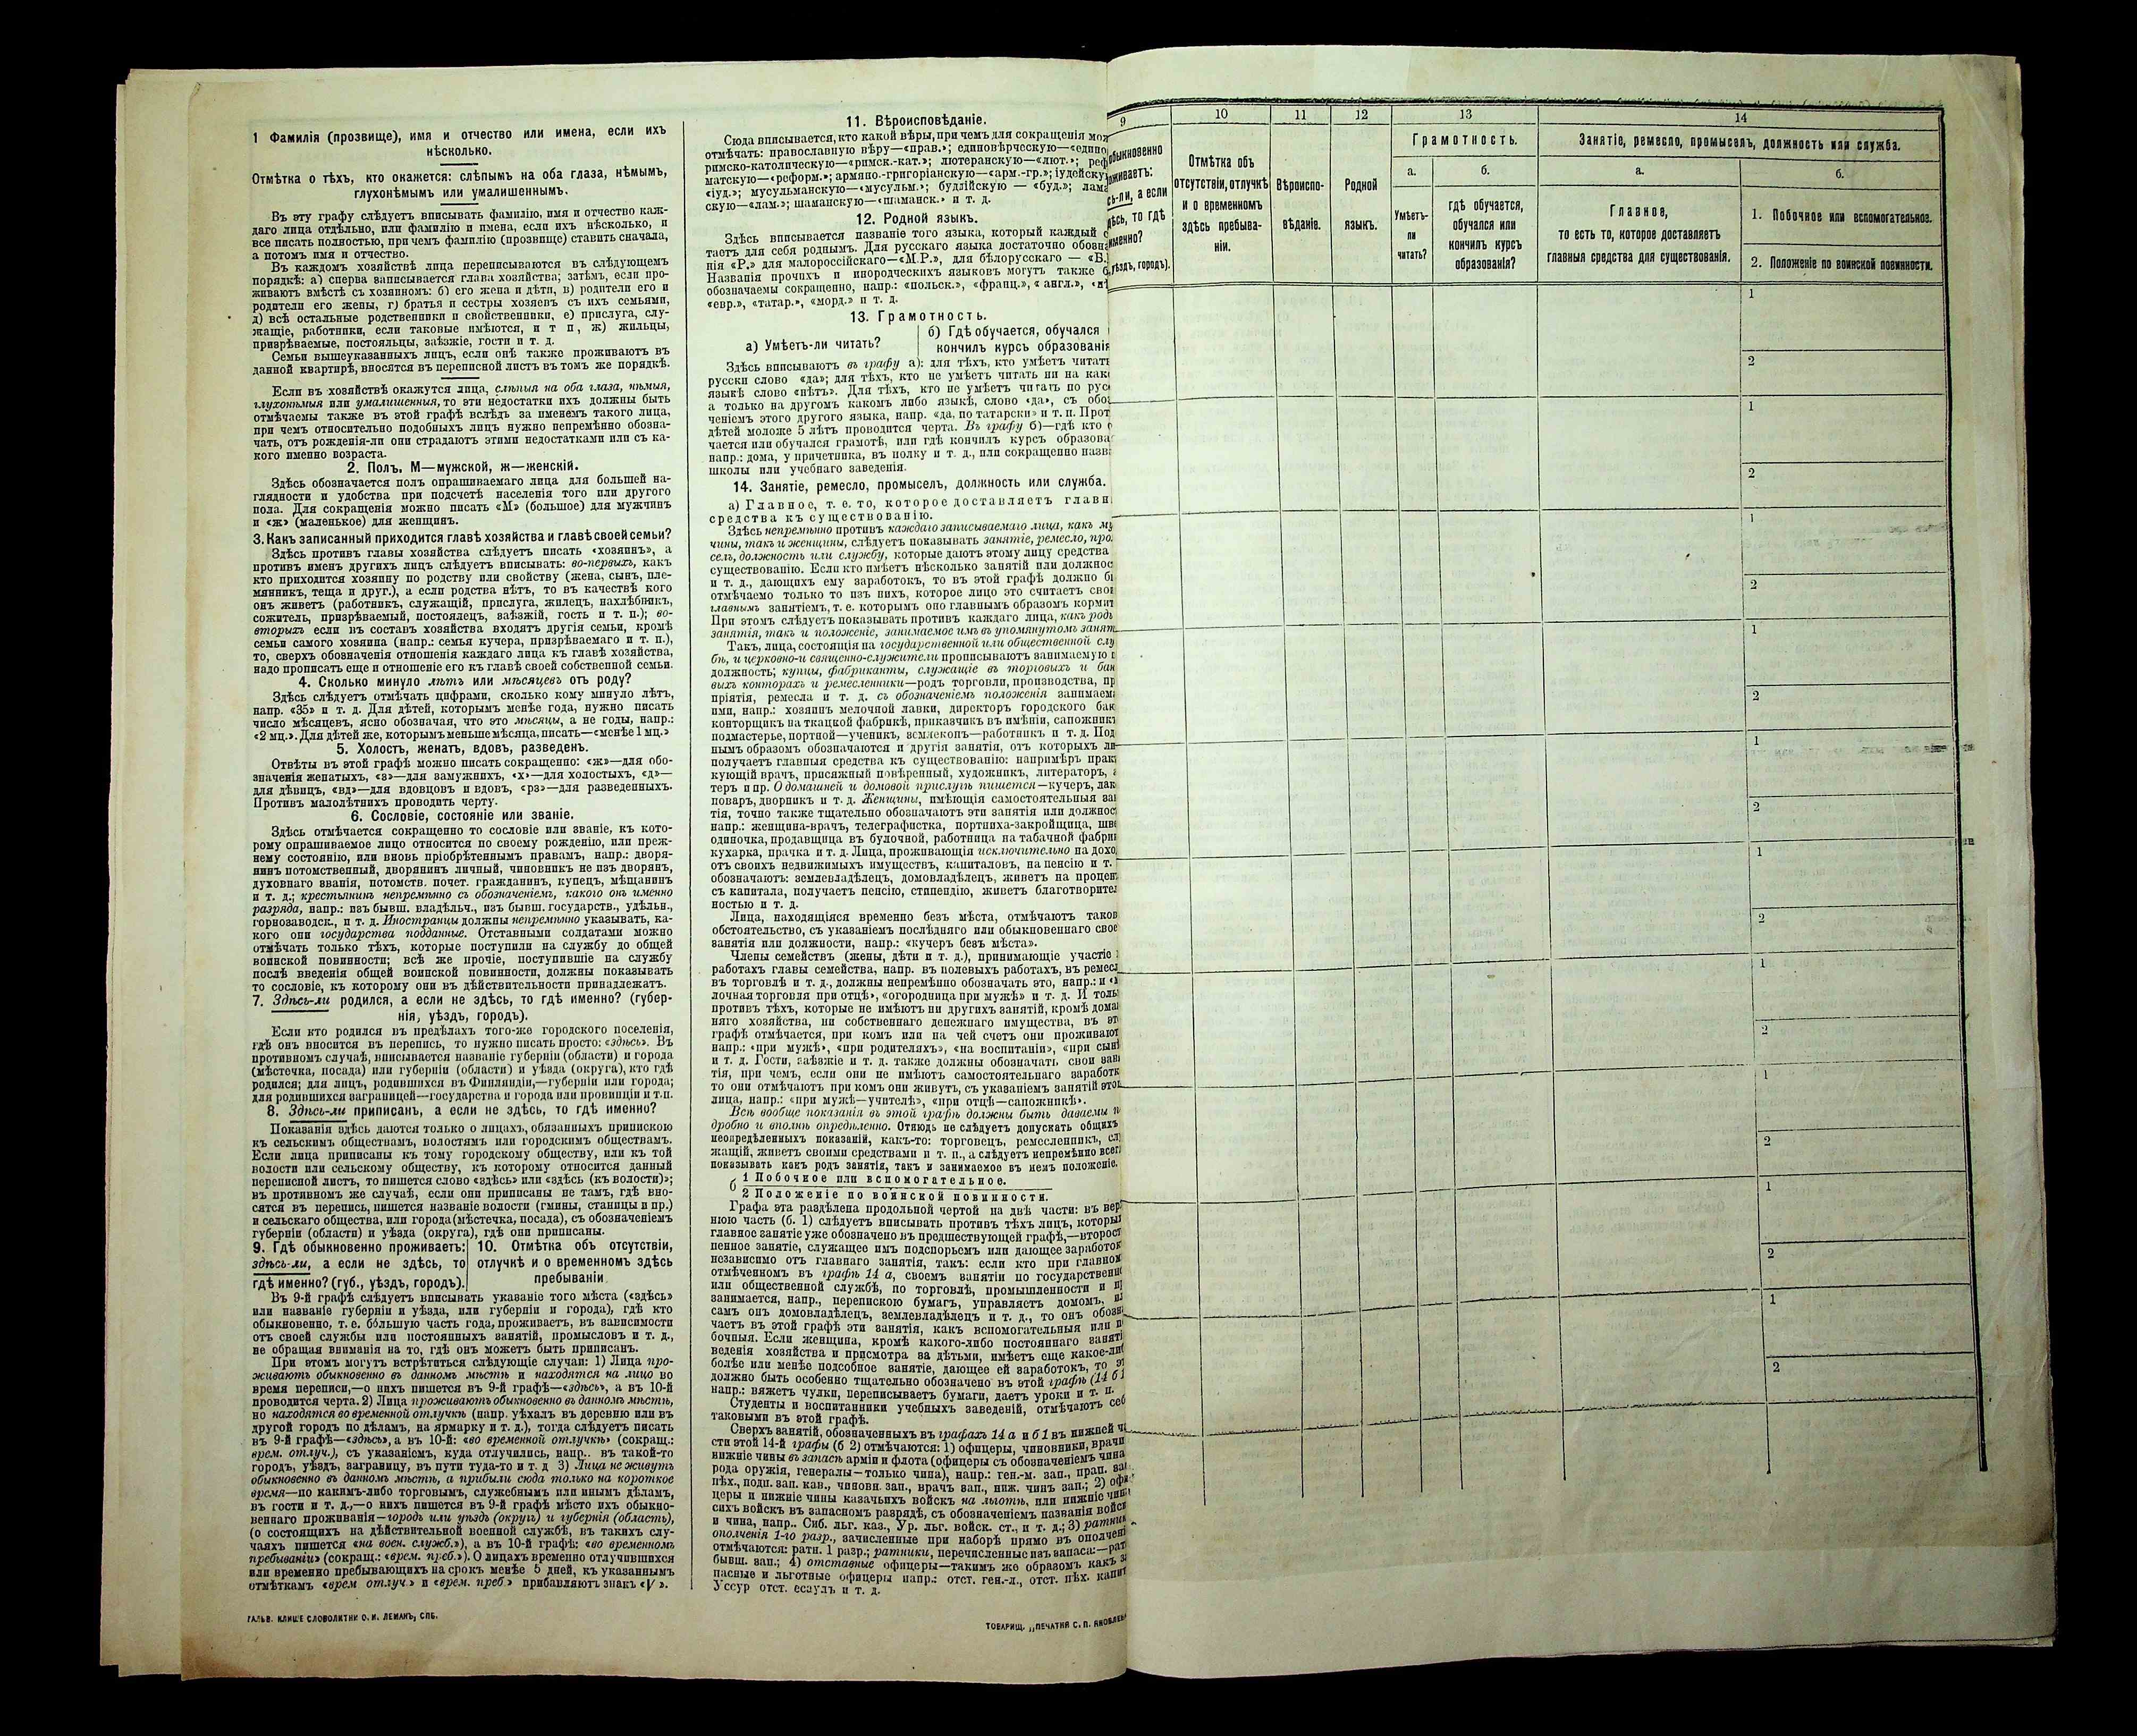 1 Фамилія (прозвище), имя и отчество или имена, если ихъ
нѣсколько.
Отмѣтка о тѣхъ, кто окажется: слѣпымъ на оба глаза, нѣмымъ,
глухонѣмымъ или умалишеннымъ.
Въ эту графу слѣдуетъ вписывать фамилію, имя и отчество каж-
даго лица отдѣльно, или фамилію и имена, если ихъ нѣсколько, и
все писать полностью, при чемъ фамилію (прозвище) ставить сначала,
а потомъ имя и отчество.
Въ каждомъ хозяйствѣ лица переписываются въ слѣдующемъ
порядкѣ: а) сперва записывается глава хозяйства; затѣмъ, если про-
живаютъ вмѣстѣ съ хозяиномъ: б) его жена и дѣти, в) родители его и
родители его жены, г) братья и сестры хозяевъ съ ихъ семьями,
д) всѣ остальные родственники и свойственники, е) прислуга, слу-
жащіе, работники, если таковые имѣются, и т п, ж) жильцы,
призрѣваемые, постояльцы, заѣзжіе, гости и т. д.
Семьи вышеуказанныхъ лицъ, если онѣ также проживаютъ въ
данной квартирѣ, вносятся въ переписной листъ въ томъ же порядкѣ.
Если въ хозяйствѣ окажутся лица, слѣпыя на оба глаза, нѣмыя,
глухонѣмыя или умалишенныя, то эти недостатки ихъ должны быть
отмѣчаемы также въ этой графѣ вслѣдъ за именемъ такого лица,
при чемъ относительно подобныхъ лицъ нужно непремѣнно обозна-
чать, отъ рожденія-ли они страдаютъ этими недостатками или съ ка-
кого именно возраста.
2. Полъ. М—мужской, ж—женскій.
Здѣсь обозначается полъ опрашиваемаго лица для большей на-
глядности и удобства при подсчетѣ населенія того или другого
пола. Для сокращенія можно писать «М» (большое) для мужчинъ
и «ж» (маленькое) для женщинъ.
3. Какъ записанный приходится главѣ хозяйства и главѣ своей семьи?
Здѣсь противъ главы хозяйства слѣдуетъ писать «хозяинъ», а
противъ именъ другихъ лицъ слѣдуетъ вписывать: во-первыхъ, какъ
кто приходится хозяину по родству или свойству (жена, сынъ, пле-
мянникъ, теща и друг.), а если родства нѣтъ, то въ качествѣ кого
онъ живетъ (работникъ, служащій, прислуга, жилецъ, нахлѣбникъ,
сожитель, призрѣваемый, постоялецъ, заѣзжій, гость и т. п.); во-
вторыхъ если въ составъ хозяйства входятъ другія семьи, кромѣ
семьи самого хозяина (напр.: семья кучера, призрѣваемаго и т. п.),
то, сверхъ обозначенія отношенія каждаго лица къ главѣ хозяйства,
надо прописать еще и отношеніе его къ главѣ своей собственной семьи.
4. Сколько минуло лѣтъ или мѣсяцевъ отъ роду?
Здѣсь слѣдуетъ отмѣчать цифрами, сколько кому минуло лѣтъ,
напр. «35» и т. д. Для дѣтей, которымъ менѣе года, нужно писать
число мѣсяцевъ, ясно обозначая, что это мѣсяцы, а не годы, напр.:
«2 мц.». Для дѣтей же, которымъ меньше мѣсяца, писать—«менѣе 1 мц.»
5. Холостъ, женатъ, вдовъ, разведенъ.
Отвѣты въ этой графѣ можно писать сокращенно: «ж»—для обо-
значенія женатыхъ, «з»—для замужнихъ, «х»—для холостыхъ, «д»—
для дѣвицъ, «вд»—для вдовцовъ и вдовъ, «рз»—для разведенныхъ.
Противъ малолѣтнихъ проводить черту.
6. Сословіе, состояніе или званіе.
Здѣсь отмѣчается сокращенно то сословіе или званіе, къ кото-
рому опрашиваемое лицо относится по своему рожденію, или преж-
нему состоянію, или вновь пріобрѣтеннымъ правамъ, напр.: дворя-
нинъ потомственный, дворянинъ личный, чиновникъ не изъ дворянъ,
духовнаго званія, потомств. почет. гражданинъ, купецъ, мѣщанинъ
и т. д.; крестьянинъ непремѣнно съ обозначеніемъ, какого онъ именно
разряда, напр.: изъ бывш. владѣльч., изъ бывш. государств., удѣльн.,
горнозаводск., и т. д. Иностранцы должны непремѣнно указывать, ка-
кого они государства подданные. Отставными солдатами можно
отмѣчать только тѣхъ, которые поступили на службу до общей
воинской повинности; всѣ же прочіе, поступившіе на службу
послѣ введенія общей воинской повинности, должны показывать
то сословіе, къ которому они въ дѣйствительности принадлежатъ.
7. Здѣсь-ли родился, а если не здѣсь, то гдѣ именно? (губер-
нія, уѣздъ, городъ).
Если кто родился въ предѣлахъ того-же городского поселенія,
гдѣ онъ вносится въ перепись, то нужно писать просто: «здѣсь». Въ
противномъ случаѣ, вписывается названіе губерніи (области) и города
(мѣстечка, посада) или губерніи (области) и уѣзда (округа), кто гдѣ
родился; для лицъ, родившихся въ Финляндіи,—губерніи или города;
для родившихся заграницей—государства и города или провинціи и т.п.
8. Здѣсь-ли приписанъ, а если не здѣсь, то гдѣ именно?
Показанія здѣсь даются только о лицахъ, обязанныхъ припискою
къ сельскимъ обществамъ, волостямъ или городскимъ обществамъ.
Если лица приписаны къ тому городскому обществу, или къ той
волости или сельскому обществу, къ которому относится данный
переписной листъ, то пишется слово «здѣсь» или «здѣсь (къ волости)»;
въ противномъ же случаѣ, если они приписаны не тамъ, гдѣ вно-
сятся въ перепись, пишется названіе волости (гмины, станицы и пр.)
и сельскаго общества, или города (мѣстечка, посада), съ обозначеніемъ
губерніи (области) и уѣзда (округа), гдѣ они приписаны.
9. Гдѣ обыкновенно проживаетъ:
здѣсь-ли, а если не здѣсь, то
гдѣ именно? (губ., уѣздъ, городъ).
10. Отмѣтка объ отсутствіи,
отлучкѣ и о временномъ здѣсь
пребываніи
Въ 9-й графѣ слѣдуетъ вписывать указаніе того мѣста («здѣсь»
или названіе губерніи и уѣзда, или губерніи и города), гдѣ кто
обыкновенно, т. е. бо́льшую часть года, проживаетъ, въ зависимости
отъ своей службы или постоянныхъ занятій, промысловъ и т. д.,
не обращая вниманія на то, гдѣ онъ можетъ быть приписанъ.
При этомъ могутъ встрѣтиться слѣдующіе случаи: 1) Лица про-
живаютъ обыкновенно въ данномъ мѣстѣ и находятся на лицо во
время переписи,—о нихъ пишется въ 9-й графѣ—«здѣсь», а въ 10-й
проводится черта. 2) Лица проживаютъ обыкновенно въ данномъ мѣстѣ,
но находятся во временной отлучкѣ (напр. уѣхалъ въ деревню или въ
другой городъ по дѣламъ, на ярмарку и т. д.), тогда слѣдуетъ писать
въ 9-й графѣ—«здѣсь», а въ 10-й: «во временной отлучкѣ» (сокращ.:
врем. отлуч.), съ указаніемъ, куда отлучились, напр.. въ такой-то
городъ, уѣздъ, заграницу, въ пути туда-то и т. д 3) Лица не живутъ
обыкновенно въ данномъ мѣстѣ, а прибыли сюда только на короткое
время—по какимъ-либо торговымъ, служебнымъ или инымъ дѣламъ,
въ гости и т. д.,—о нихъ пишется въ 9-й графѣ мѣсто ихъ обыкно-
веннаго проживанія—городъ или уѣздъ (округъ) и губернія (область),
(о состоящихъ на дѣйствительной военной службѣ, въ такихъ слу-
чаяхъ пишется «на воен. служб.»), а въ 10-й графѣ: «во временномъ
пребываніи» (сокращ.: «врем. преб.»). О лицахъ временно отлучившихся
или временно пребывающихъ на срокъ менѣе 5 дней, къ указаннымъ
отмѣткамъ «врем отлуч.» и «врем. преб.» прибавляютъ знакъ «V».
ГАЛЬВ. КЛИШЕ СЛОВОЛИТНИ О. И. ЛЕМАНЪ, СПБ.
11. Вѣроисповѣданіе.
Сюда вписывается, кто какой вѣры, при чемъ для сокращенія мож
отмѣчать: православную вѣру—«прав.»; единовѣрческую—«едино
римско-католическую—«римск.-кат.»; лютеранскую—«лют.»; реф
матскую—«реформ.»; армяно-григоріанскую—«арм.-гр.»; іудейску
«іуд.»; мусульманскую—«мусульм.»; буддійскую — «буд.»; лама
скую—«лам.»; шаманскую—«шаманск.» и т. д.
12. Родной языкъ.
Здѣсь вписывается названіе того языка, который каждый с
таетъ для себя роднымъ. Для русскаго языка достаточно обозна
нія «Р.» для малороссійскаго—«М.Р.», для бѣлорусскаго — «Б.
Названія прочихъ и инородческихъ языковъ могутъ также б
обозначаемы сокращенно, напр.: «польск.», «франц.», «англ.», «нѣ
«евр.», «татар.», «морд.» и т. д.
13. Грамотность.
а) Умѣетъ-ли читать?
б) Гдѣ обучается, обучался
кончилъ курсъ образованія
Здѣсь вписываютъ въ графу а): для тѣхъ, кто умѣетъ читать
русски слово «да»; для тѣхъ, кто не умѣетъ читать ни на как
языкѣ слово «нѣтъ». Для тѣхъ, кто не умѣетъ читать по рус
а только на другомъ какомъ либо языкѣ, слово «да», съ обоз
ченіемъ этого другого языка, напр. «да, по татарски» и т. п. Прот
дѣтей моложе 5 лѣтъ проводится черта. Въ графу б)—гдѣ кто о
чается или обучался грамотѣ, или гдѣ кончилъ курсъ образова
напр.: дома, у причетника, въ полку и т. д., или сокращенно назва
школы или учебнаго заведенія.
14. Занятіе, ремесло, промыселъ, должность или служба.
а) Главное, т. е. то, которое доставляетъ главн
средства къ существованію.
Здѣсь непремѣнно противъ каждаго записываемаго лица, какъ му
чины, такъ и женщины, слѣдуетъ показывать занятіе, ремесло, про
селъ, должность или службу, которые даютъ этому лицу средства
существованію. Если кто имѣетъ нѣсколько занятій или должнос
и т. д., дающихъ ему заработокъ, то въ этой графѣ должно бы
отмѣчаемо только то изъ нихъ, которое лицо это считаетъ свои
главнымъ занятіемъ, т. е. которымъ оно главнымъ образомъ кормит
При этомъ слѣдуетъ показывать противъ каждаго лица, какъ родъ
занятія, такъ и положеніе, занимаемое имъ въ упомянутомъ занят
Такъ, лица, состоящія на государственной или общественной слу
бѣ, и церковно-и священно-служители прописываютъ занимаемую
должность; купцы, фабриканты, служащіе въ торговыхъ и бан
выхъ конторахъ и ремесленники—родъ торговли, производства, пр
пріятія, ремесла и т. д. съ обозначеніемъ положенія занимаем
ими, напр.: хозяинъ мелочной лавки, директоръ городского бан
конторщикъ на ткацкой фабрикѣ, приказчикъ въ имѣніи, сапожникъ
подмастерье, портной—ученикъ, землекопъ—работникъ и т. д. Под
нымъ образомъ обозначаются и другія занятія, отъ которыхъ ли
получаетъ главныя средства къ существованію: напримѣръ прак
кующій врачъ, присяжный повѣренный, художникъ, литераторъ, а
теръ и пр. О домашней и домовой прислугѣ пишется—кучеръ, лак
поваръ, дворникъ и т. д. Женщины, имѣющія самостоятельныя зан
тія, точно также тщательно обозначаютъ эти занятія или должнос
напр.: женщина-врачъ, телеграфистка, портниха-закройщица, шве
одиночка, продавщица въ булочной, работница на табачной фабри
кухарка, прачка и т. д. Лица, проживающія исключительно на дохо
отъ своихъ недвижимыхъ имуществъ, капиталовъ, на пенсію и т.
обозначаютъ: землевладѣлецъ, домовладѣлецъ, живетъ на процен
съ капитала, получаетъ пенсію, стипендію, живетъ благотворител
ностью и т. д.
Лица, находящіяся временно безъ мѣста, отмѣчаютъ таков
обстоятельство, съ указаніемъ послѣдняго или обыкновеннаго свое
занятія или должности, напр.: «кучеръ безъ мѣста».
Члены семействъ (жены, дѣти и т. д.), принимающіе участіе
работахъ главы семейства, напр. въ полевыхъ работахъ, въ ремесл
въ торговлѣ и т. д., должны непремѣнно обозначать это, напр.: и «м
лочная торговля при отцѣ», «огородница при мужѣ» и т. д. И толь
противъ тѣхъ, которые не имѣютъ ни другихъ занятій, кромѣ дома
няго хозяйства, ни собственнаго денежнаго имущества, въ эт
графѣ отмѣчается, при комъ или на чей счетъ они проживают
напр.: «при мужѣ», «при родителяхъ», «на воспитаніи», «при сын
и т. д. Гости, заѣзжіе и т. д. также должны обозначать свои зан
тія, при чемъ, если они не имѣютъ самостоятельнаго заработк
то они отмѣчаютъ при комъ они живутъ, съ указаніемъ занятій этог
лица, напр.: «при мужѣ—учителѣ», «при отцѣ—сапожникѣ».
Всѣ вообще показанія въ этой графѣ должны быть даваемы п
дробно и вполнѣ опредѣленно. Отнюдь не слѣдуетъ допускать общихъ
неопредѣленныхъ показаній, какъ-то: торговецъ, ремесленникъ, сл
жащій, живетъ своими средствами и т. п., а слѣдуетъ непремѣнно всег
показывать какъ родъ занятія, такъ и занимаемое въ немъ положеніе.
б 1 Побочное или вспомогательное.
2 Положеніе по воинской повинности.
Графа эта раздѣлена продольной чертой на двѣ части: въ вер
нюю часть (б. 1) слѣдуетъ вписывать противъ тѣхъ лицъ, которы
главное занятіе уже обозначено въ предшествующей графѣ,—второст
пенное занятіе, служащее имъ подспорьемъ или дающее заработок
независимо отъ главнаго занятія, такъ: если кто при главном
отмѣченномъ въ графѣ 14 а, своемъ занятіи по государственн
или общественной службѣ, по торговлѣ, промышленности и п
занимается, напр., перепискою бумагъ, управляетъ домомъ, ил
самъ онъ домовладѣлецъ, землевладѣлецъ и т. д., то онъ обозн
чаетъ въ этой графѣ эти занятія, какъ вспомогательныя или п
бочныя. Если женщина, кромѣ какого-либо постояннаго занят
веденія хозяйства и присмотра за дѣтьми, имѣетъ еще какое-ли
болѣе или менѣе подсобное занятіе, дающее ей заработокъ, то э
должно быть особенно тщательно обозначено въ этой графѣ (14 б 1
напр.: вяжетъ чулки, переписываетъ бумаги, даетъ уроки и т. п.
Студенты и воспитанники учебныхъ заведеній, отмѣчаютъ себ
таковыми въ этой графѣ.
Сверхъ занятій, обозначенныхъ въ графахъ 14 а и б 1 въ нижней ча
сти этой 14-й графы (б 2) отмѣчаются: 1) офицеры, чиновники, врачи
нижніе чины въ запасѣ арміи и флота (офицеры съ обозначеніемъ чина
рода оружія, генералы—только чина), напр.: ген.-м. зап., прап. за
пѣх., подп. зап. кав., чиновн. зап., врачъ зап., ниж. чинъ зап.; 2) офи
церы и нижніе чины казачьихъ войскъ на льготѣ, или нижніе чин
сихъ войскъ въ запасномъ разрядѣ, съ обозначеніемъ названія войск
и чина, напр.. Сиб. льг. каз., Ур. льг. войск. ст., и т. д.; 3) ратник
ополченія 1-го разр., зачисленные при наборѣ прямо въ ополчен
отмѣчаются: ратн. 1 разр.; ратники, перечисленные изъ запаса:—рат
бывш. зап.; 4) отставные офицеры—такимъ же образомъ какъ з
пасные и льготные офицеры напр.: отст. ген.-л., отст. пѣх. капит
Уссур отст. есаулъ и т. д.
ТОВАРИЩ. „ПЕЧАТНЯ С. П. ЯКОВЛЕВ
9
обыкновенно
живаетъ:
сь-ли, а если
дѣсь, то гдѣ
именно?
уѣздъ, городъ).
10
Отмѣтка объ
отсутствіи, отлучкѣ
и о временномъ
здѣсь пребыва-
ніи.
11
Вѣроиспо-
вѣданіе.
12
Родной
языкъ.
13
Грамотность.
а.
Умѣетъ-
ли
читать?
б.
гдѣ обучается,
обучался или
кончилъ курсъ
образованія?
14
Занятіе, ремесло, промыселъ, должность или служба.
а.
Главное,
то есть то, которое доставляетъ
главныя средства для существованія.
б.
1. Побочное или вспомогательное.
2. Положеніе по воинской повинности.
1
2
1
2
1
2
1
2
1
2
1
2
1
2
1
2
1
2
1
2